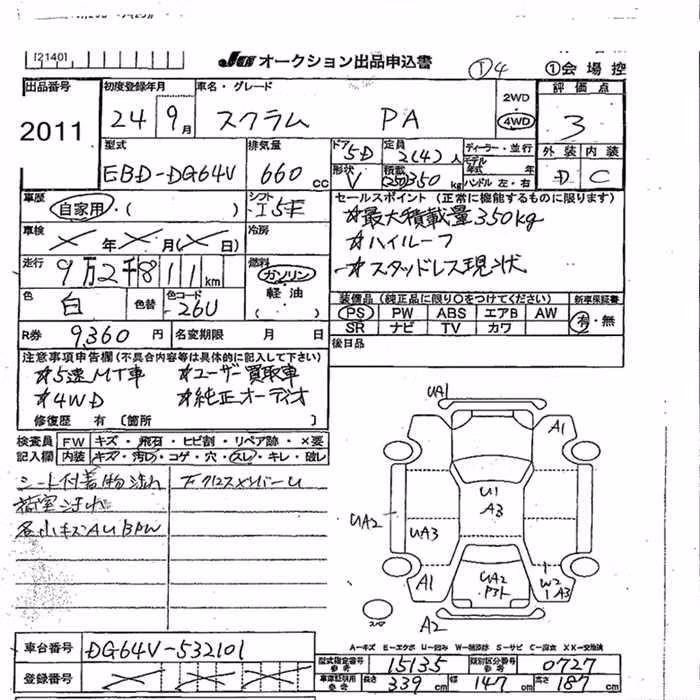 [2140]
JU オークション出品申込書
①4 ①会場控
出品番号 初度登録年月 車名・グレード 評価点
2011 24 9月 スクラム PA 2WD 4WD 3
型式 排気量 ドア 定員 ディーラー・並行 外装 内装
EBD-DG64V 660cc 5D 2(4)人 モデル年式 年 D C
形状 V 積載 (250)350kg ハンドル 左・右
車歴 シフト セールスポイント (正常に機能するものに限ります)
自家用・( ) I5F ☆最大積載量350kg
車検 年 月( 日) 冷房 ☆ハイルーフ
走行 9万2千811km 燃料 ガソリン 軽油 ☆スタッドレス現状
色 白 色替 色コード 26U 装備品(純正品に限り○をつけてください) 新車保証書
PS PW ABS エアB AW 有・無
R券 9,360円 名変期限 月 日 SR ナビ TV カワ
注意事項申告欄(不具合内容等は具体的に記入して下さい) 後日品
☆5速MT車 ☆ユーザー買取車
☆4WD ☆純正オーディオ
修復歴 有 〔箇所 〕
検査員 FW キズ・飛石・ヒビ割・リペア跡・×要
記入欄 内装 キズ・汚れ・コゲ・穴・スレ・キレ・破レ
シート付着物汚れ 下クロスメンバーU
荷室汚れ
各小キズAUBPW
UA1
A1
U1
A3
UA2
UA3
A1
UA2
W2
1 A3
A2
スペア
A-キズ E-エクボ U-凹み W-補修跡 S-サビ C-腐食 XX-交換済
車台番号 DG64V-532101
型式指定番号 参考 15135 類別区分番号 参考 0727
登録番号
車庫証明用 参考 長さ 339cm 幅 147cm 高さ 187cm